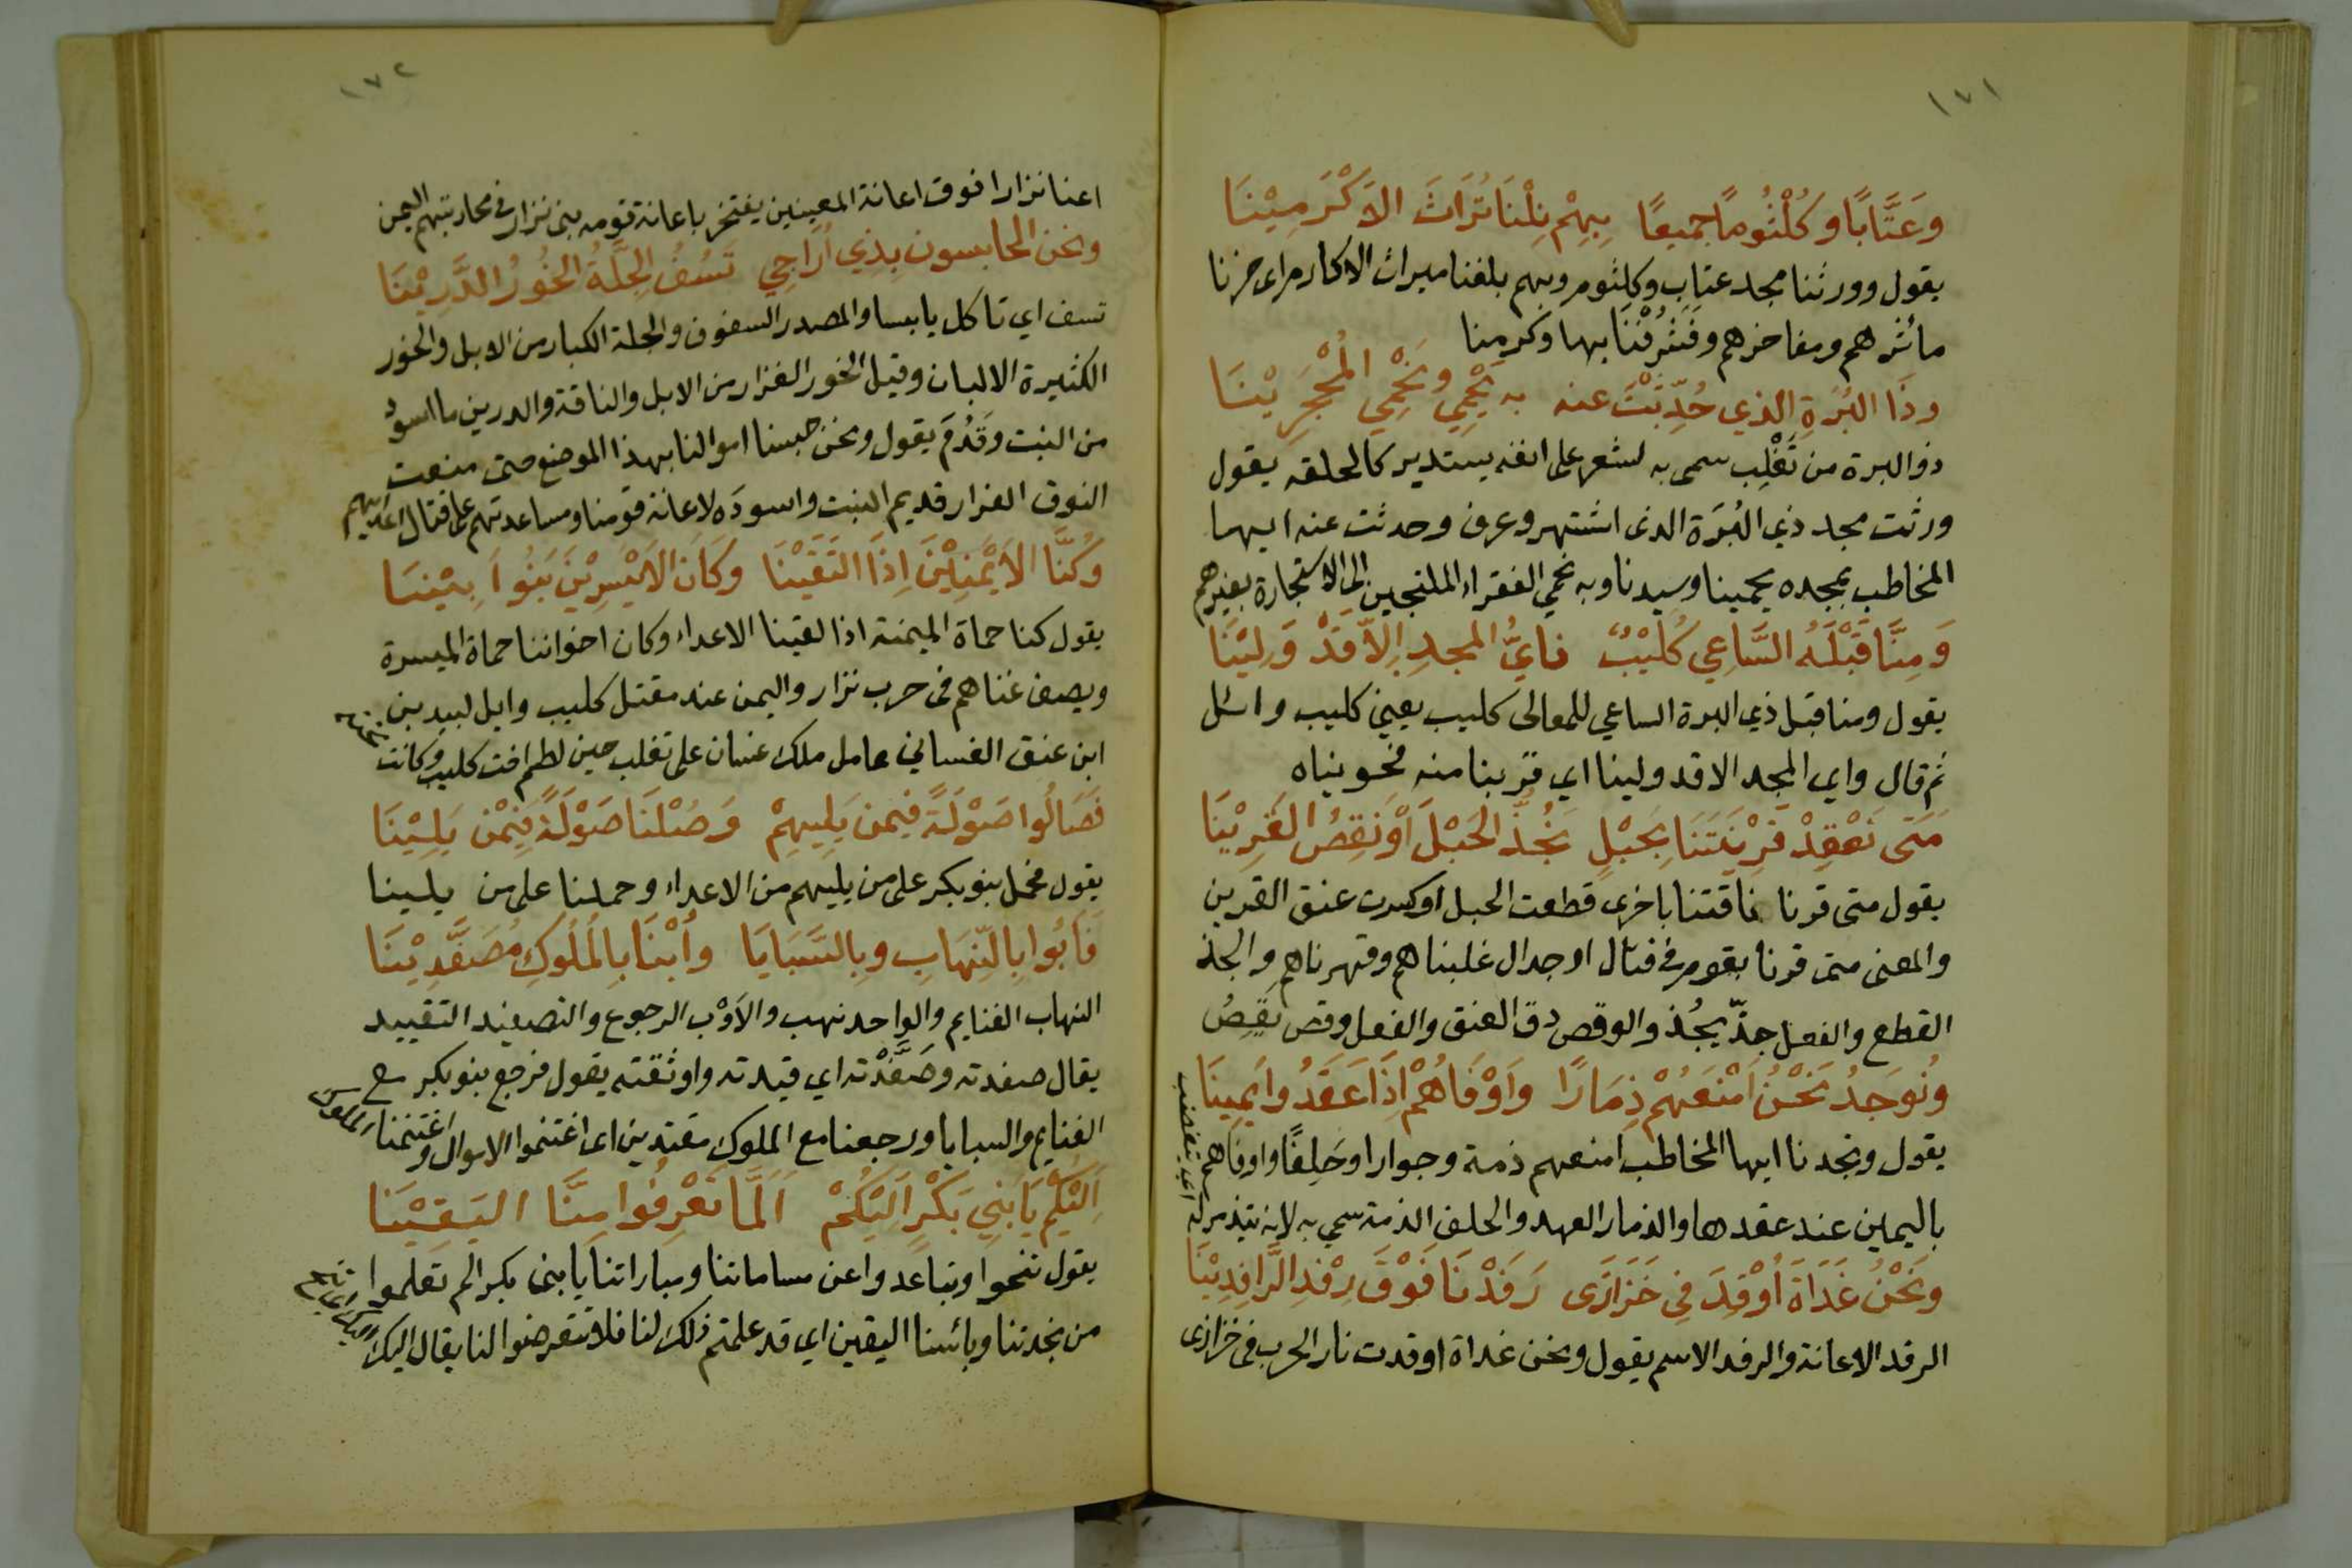 ١٧١
وَعَتَّابًا وَكُلْثُومًا جميعًا بِهِمْ نِلْنَا تُرَاثَ الاَكْرَمِيْنَا
يقول وورثنا مجد عتاب وكلثوم وبهم بلغنا ميراث الاكارم اى حزنا
مأثرهم ومفاخرهم وفَشَرُفْنَا بها وكرمنا
وذَا البُرَةِ الذي حُدِّثْتَ عنه به نُحْمِي ونَحْمِي المُحْجَرِيْنَا
ذو البرة من تَغْلِب سمى به لشعر على انفه يستدير كالحلقه يقول
ورثت مجد ذي البُرَة الذى اشتهر وعرف وحدثت عنه ايها
المخاطب بمجده يحمينا وسيدنا وبه نحمي الفقراء الملتجين الى الاستجارة بغيرهم
وَمِنَّا قَبْلَهُ السَّاعِي كُلَيْبٌ فايُّ المجدِ اِلاَّ قَدْ وَلِيْنَا
يقول ومنا قبل ذي البرة الساعي للمعالى كليب يعني كليب وائل
ثم قال واي المجد الا قد ولينا اي قربنا منه فحويناه
مَتَى نَعْقِدْ قَرِيْنَتَنَا بِحَبْلٍ نَجُذُّ الحَبْلَ اَوْ نَقِصُ القَرِيْنَا
يقول متى قرنا ناقتنا باخرى قطعت الحبل او كسرت عنق القرين
والمعنى متى قرنا بقوم في قتال او جدال غلبناهم وقهرناهم والجذ
القطع والفعل جذّ يجُذ والوقص دق العنق والفعل وقص يَقِصُ
ونُوجَدُ نَحْنُ اَمْنَعُهُمْ ذِمَارًا وَاَوْفَاهُمْ اِذَا عَقَدُوا يَمِينَا
يقول وتجدنا ايها المخاطب امنعهم ذمة وجوارا وحَلِفًا واوفاهم
باليمين عند عقدها والذمار العهد والحلف الذمة سمي به لانه يتذمر له
اي يتغضب
ونَحْنُ غَدَاةَ اُوْقِدَ فِي خَزَازَى رَفَدْنَا فَوْقَ رِفْدِ الرَّافِدِيْنَا
الرفد الاعانة والرفد الاسم يقول ونحن غداة اوقدت نار الحرب فى خزازى
١٧٢
اعنا نزارا فوق اعانة المعينين يفتخر باعانة قومه بنى نزار في محاربتهم اليمن
ونحن الحابسون بذي اُرَاجِي تَسُفُّ الجِلَّةُ الخُورُ الدَّرِيْنَا
تسف اي تاكل يابسا والمصدر السفوف والجلة الكبار من الابل والخور
الكثيرة الالبان وقيل الخور الغزار من الابل والناقة والدرين ما اسود
من النبت وقَدُمَ يقول ونحن حبسنا اموالنا بهذا الموضع حتى منعت
النوق الغزار قديم النبت واسودَه لاعانة قومنا ومساعدتهم على قتال اعدايهم
وَكُنَّا الاَيْمَنِيْنَ اِذَا التَقَيْنَا وَكَانَ الاَيْسَرِيْنَ بَنُوا بِيْنَا
يقول كنا حماة الميمنة اذا لقينا الاعداء وكان اخواننا حماة الميسرة
ويصف غناهم فى حرب نزار واليمن عند مقتل كليب وايل لبيد بن
ابن عنق الغساني عامل ملك غسان على تغلب حين لطم اخت كليب وكانت
تحته
فَصَالُوا صَوْلَةً فِيمن يَلِيهِمْ وَصُلْنَا صَوْلَةً فِيْمَنْ يَلِيْنَا
يقول فحمل بنو بكر على من يليهم من الاعداء وحملنا على من يلينا
فَآبُوا بِالنِّهَابِ وبِالسَّبَايَا وأُبْنَا بِالمُلُوكِ مُصَفَّدِيْنَا
النهاب الغنايم والواحد نهب والاَوْب الرجوع والتصفيد التقييد
يقال صفدته وصَفَّدْته اي قيدته واوثقته يقول فرجع بنو بكر مع
الغنايم والسبايا ورجعنا مع الملوك مقيدين اى اغتنموا الاموال واغتنمنا الملوك
اِلَيْكُمْ يَا بَنِي بَكْرٍ اِلَيْكُمْ اَلَمَّا تَعْرِفُوا مِنَّا اليَقِيْنَا
يقول تنحوا وتباعدوا عن مساماتنا ومباراتنا يا بنى بكر الم تعلموا
من نجدتنا وبائسنا اليقين اي قد علمتم ذلك لنا فلا تتعرضوا لنا يقال اليك